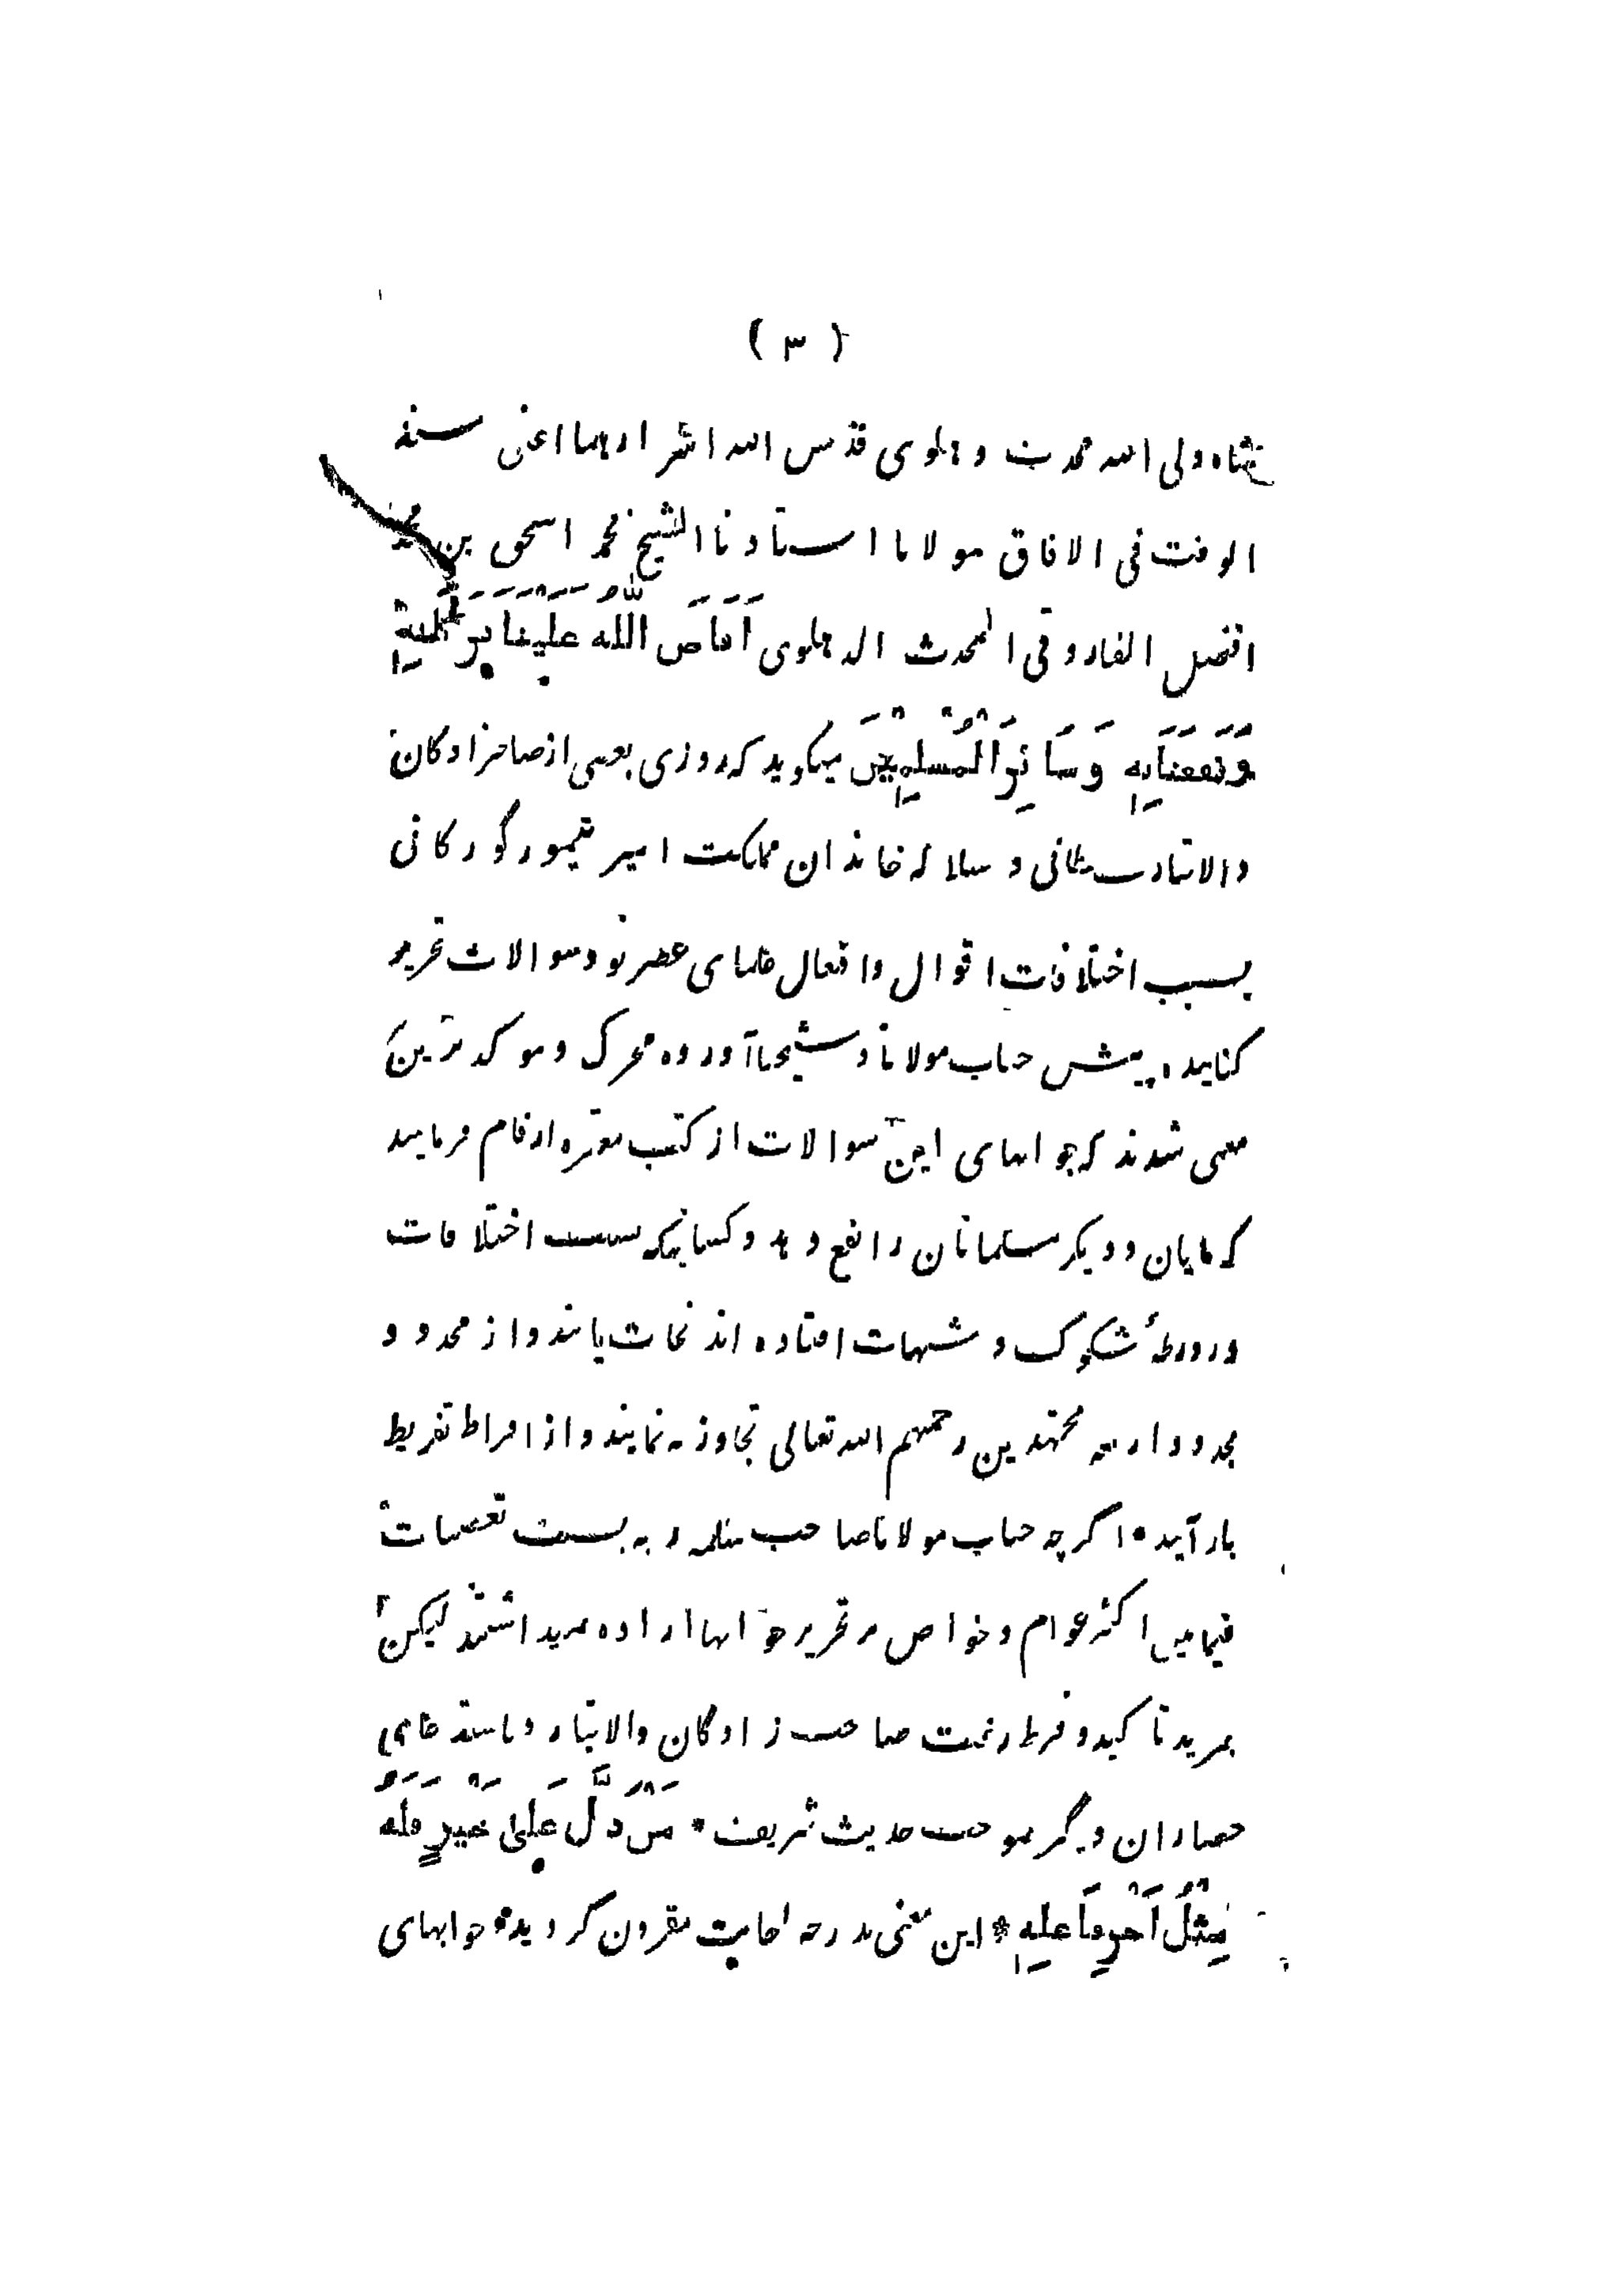 ( ٣ )
شاه ولی الله محدث دهلوی قدس الله اسرارهما اعنی سند
الوقت فی الافاق مولانا استادنا الشیخ محمد اسحق بن محمد
افضل الفاروقی المحدث الدهلوی اَفَاضَ اللّٰهُ عَلَیْنَا بَرَکَاتِهِ
وَنَفَعَنَابِهٖ وَسَائِرَ الْمُسْلِمِیْنَ میگوید که روزی بعضی از صاحبزادگان
والاتبار سلطانی و سلاله خاندان مملکت امیر تیمور گورکانی
بسبب اختلافات اقوال و افعال علمای عصر نود سوالات تحریر
کنانیده پیش جناب مولانا و شیخنا آورده محرک و موکد ترین
معنی شدند که جوابهای این سوالات از کتب معتبره ارقام فرمایند
که مایان و دیگر مسلمانان را نفع دهد و کسانیکه بسبب اختلافات
در ورطهٔ شکوک و شبهات افتاده اند نجات یابند و از محدود
بحدود ائمه مجتهدین رحمهم الله تعالی تجاوز نه نمایند و از افراط تفریط
باز آیند * اگرچه جناب مولانا صاحب سلمه ربه بسبب تعصبات
فیمابین اکثر عوام و خواص بر تحریر جوابها اراده نمیداشتند لیکن
بمزید تاکید و فرط رغبت صاحب زادگان والاتبار و باستدعای
حضاران دیگر بموجب حدیث شریف * مَنْ دَلَّ عَلٰی خَیْرٍ فَلَهُ
مِثْلُ اَجْرِ فَاعِلِهٖ * این معنی بدرجه اجابت مقرون گردید * جوابهای